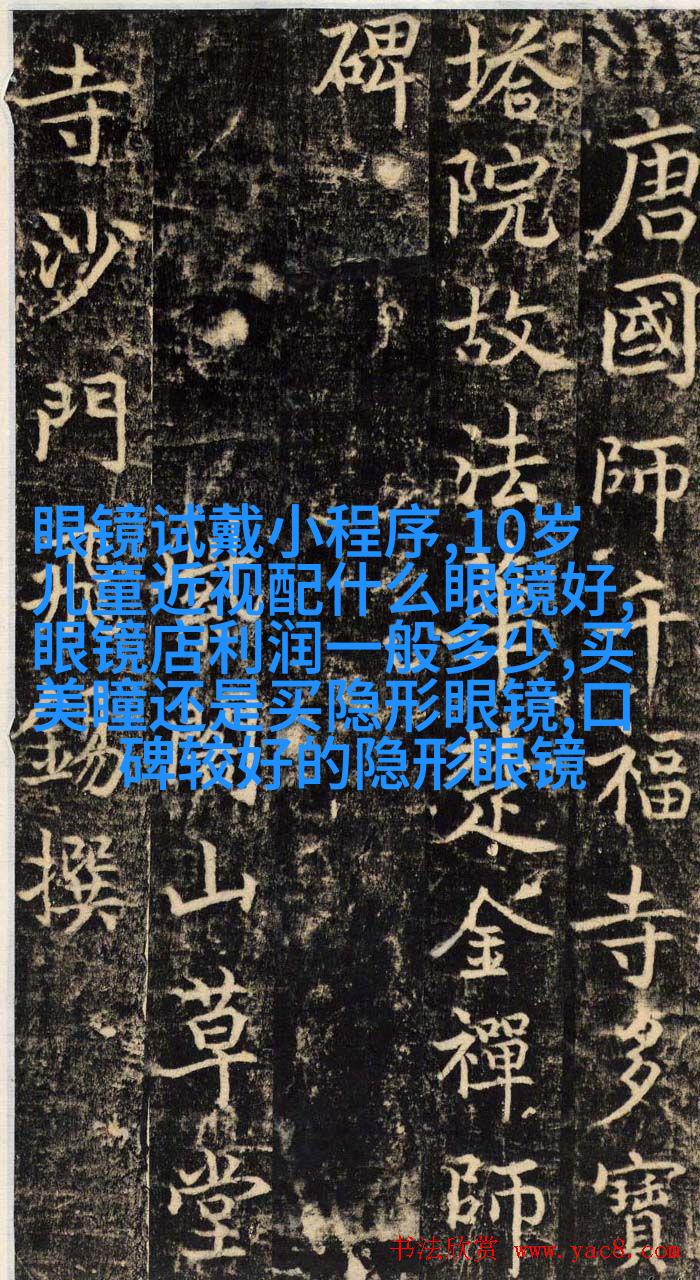 唐國師千福寺多寶
塔院故法華楚金禪師
碑
山草堂
寺沙門飛錫撰
眼镜试戴小程序,10岁
儿童近视配什么眼镜好,
眼镜店利润一般多少,买
美瞳还是买隐形眼镜,口
碑较好的隐形眼镜
书法欣赏 www.yac8.com